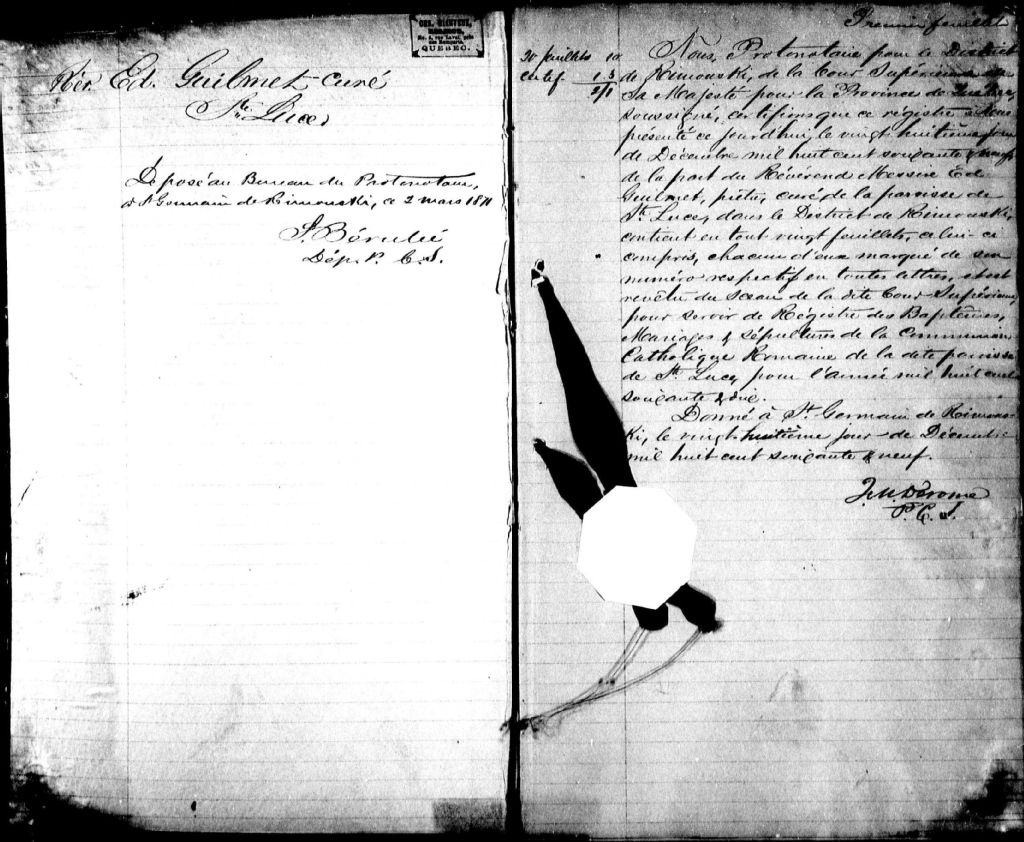 QUÉBEC.
Rév. Ed. Guilmet curé
Ste Luce
Déposé au Bureau du Protonotaire,
à St Germain de Rimouski, ce 2 mars 1871
Dép. P. C. S.
Premier feuillet
20 feuillets 10
certif 1 3
2/1
Nous, Protonotaire pour le District
de Rimouski, de la Cour Supérieure de
Sa Majesté pour la Province de Québec,
soussigné, certifions que ce régistre à Nous
présenté ce jourd'hui, le vingt huitième jour
de Décembre mil huit cent soixante & neuf
de la part du Révérend Messire Ed
Guilmet, prêtre, curé, de la paroisse de
Ste Luce, dans le District de Rimouski,
contient en tout vingt feuillets, celui-ci
compris, chacun d'eux marqué de son
numéro respectif en toutes lettres, et est
revêtu du sceau de la dite Cour Supérieure,
pour servir de Régistre des Baptêmes,
Mariages & sépultures de la Communion
Catholique Romaine de la dite paroisse
de Ste Luce, pour l'année mil huit cent
soixante & dix.
Donné à St. Germain de Rimous-
ki, le vingt-huitième jour de Décembre
mil huit cent soixante & neuf.
Derome
P. C. S.